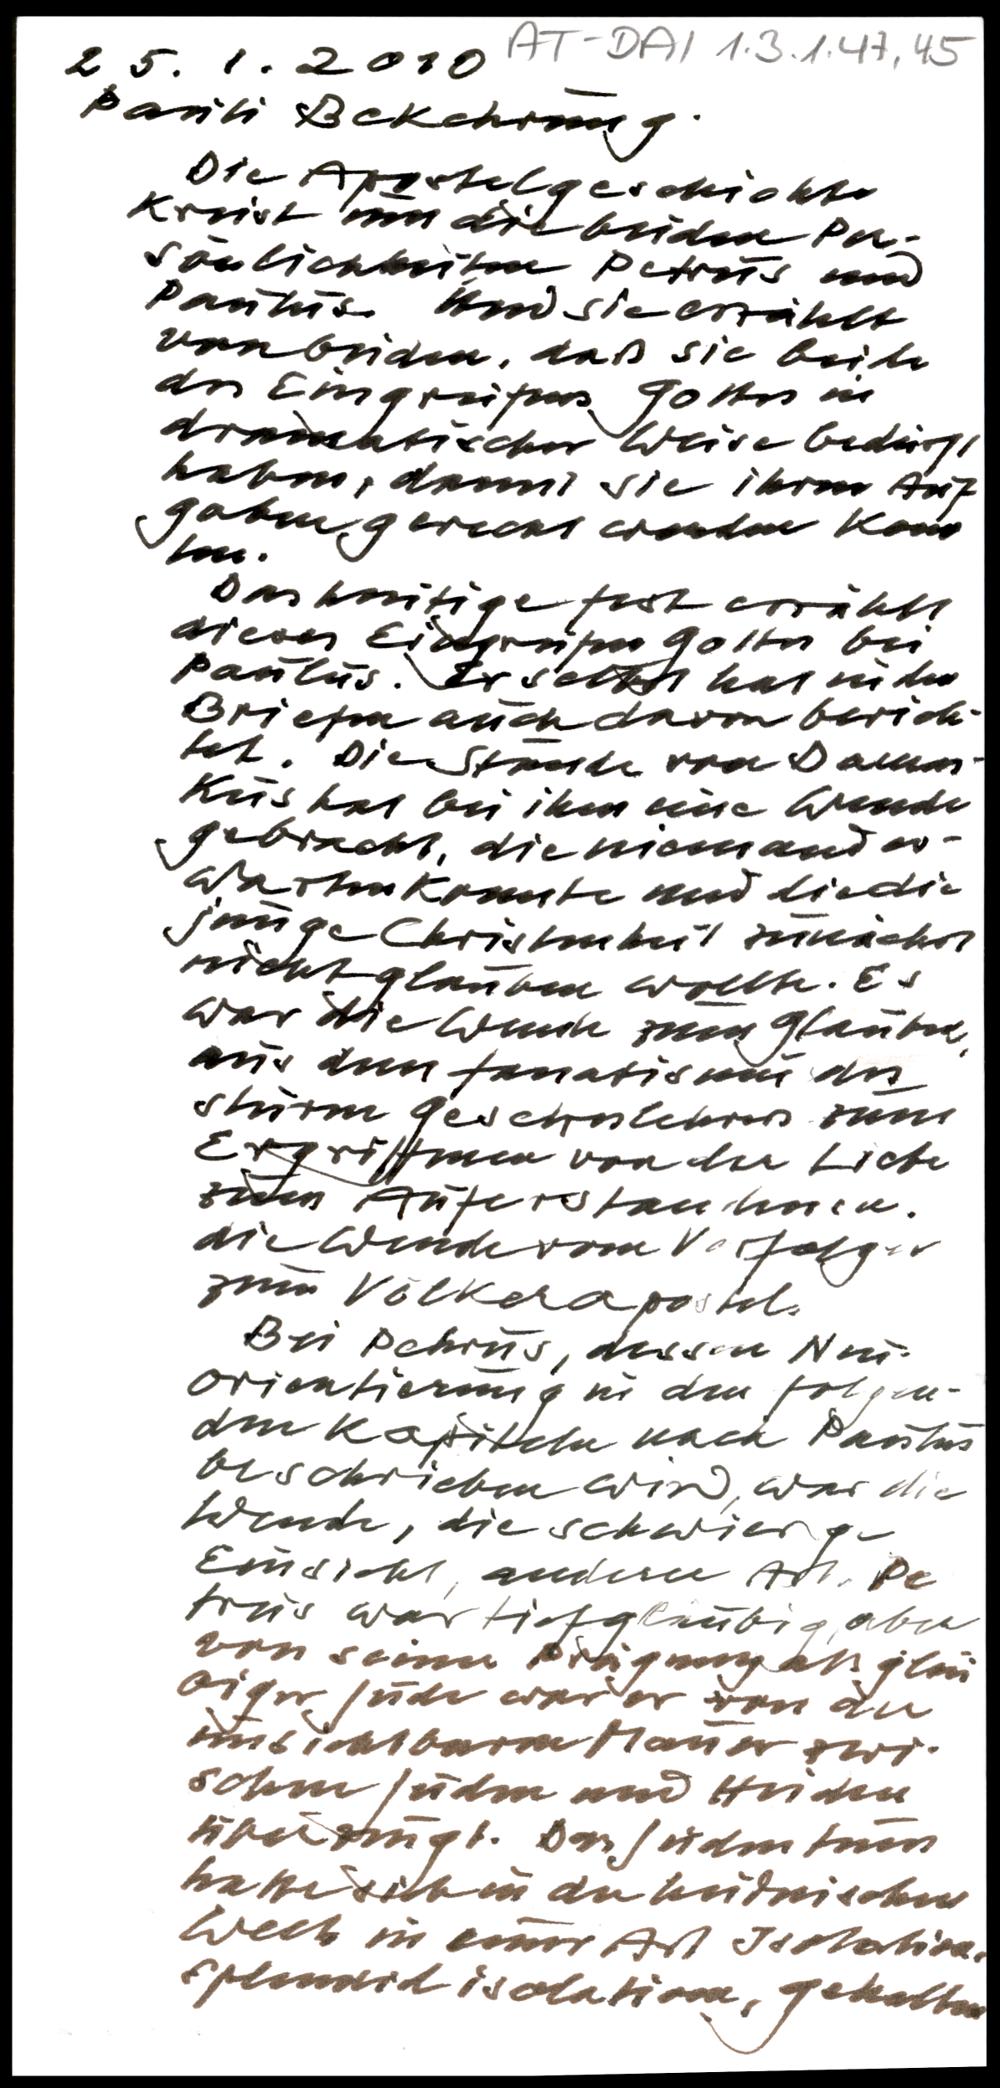 25.1.2010 AT-DAI 1.3.1.47,45
Pauli Bekehrung.
Die Apostelgeschichte
kreist um die beiden Per-
sönlichkeiten Petrus und
Paulus. Und sie erzählt
von beiden, daß sie beide
des Eingreifens Gottes in
dramatischer Weise bedurft
haben, damit sie ihren Auf
gaben gerecht werden konn
ten.
Das heutige Fest erzählt
dieses Eingreifen Gottes bei
Paulus. Er selbst hat in den
Briefen auch davon berich-
tet. Die Stunde von Damas-
kus hat bei ihm eine Wende
gebracht, die niemand er-
warten konnte und die die
junge Christenheit zunächst
nicht glauben wollte. Es
war die Wende zum Glauben,
aus dem Fanatismus des
sturen Gesetzeslehrers zum
Ergriffenen von der Liebe
zum Auferstandenen.
die Wende vom Verfolger
zum Völkerapostel.
Bei Petrus, dessen Neu-
orientierung in den folgen-
den Kapiteln nach Paulus
beschrieben wird, war die
Wende, die schwierige
Einsicht, anderer Art. Pe
trus war tiefgläubig, aber
von seiner Prägung als gläu
biger Jude war er von der
unsichtbaren Mauer zwi-
schen Juden und Heiden
überzeugt. Das Judentum
hatte sich in der heidnischen
Welt in einer Art Isolation,
splendid isolation, gehalten